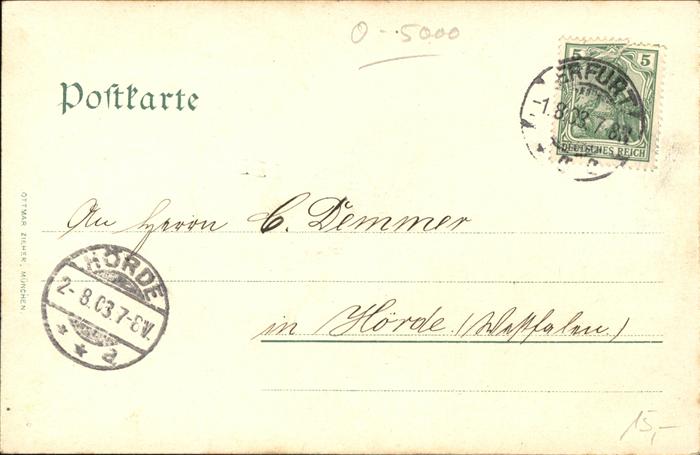 0 - 5000
5 5
DEUTSCHES REICH
ERFURT
-1.8.03.7-8N.
Postkarte
An Herrn C. Demmer
in Hörde (Westfalen)
HÖRDE
2-8.03.7-8V.
* * a
OTTMAR ZIEHER, MÜNCHEN
15,-